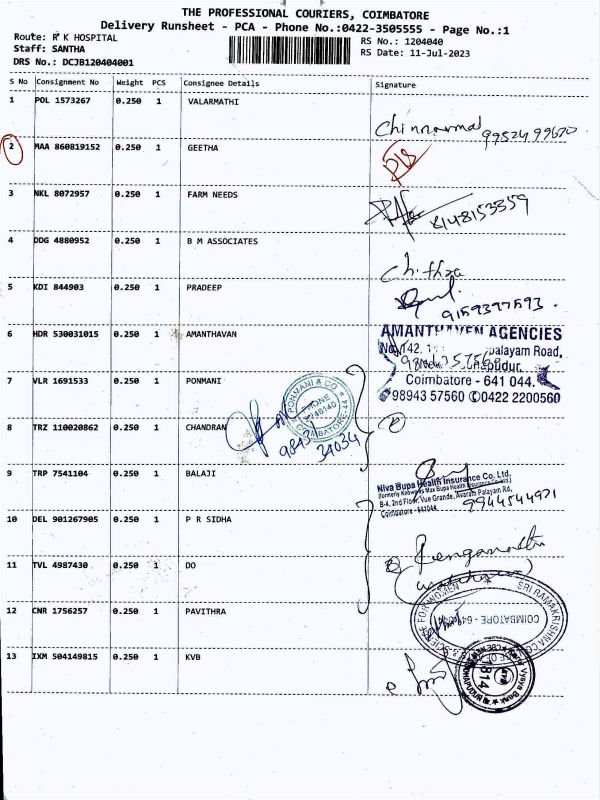 THE PROFESSIONAL COURIERS, COIMBATORE
Delivery Runsheet - PCA - Phone No.:0422-3505555 - Page No.:1
Route: R K HOSPITAL
RS No.: 1204040
Staff: SANTHA
RS Date: 11-Jul-2023
DRS No.: DCJB120404001
S No Consignment No Weight PCS Consignee Details Signature
1 POL 1573267 0.250 1 VALARMATHI
Chinnammal
2 MAA 860819152 0.250 1 GEETHA
3 NKL 8072957 0.250 1 FARM NEEDS
8148153359
4 DDG 4880952 0.250 1 B M ASSOCIATES
Chithra
5 KDI 844903 0.250 1 PRADEEP
9159397593
6 HDR 530031015 0.250 1 AMANTHAVAN
AMANTHAVEN AGENCIES
No. 142, palayam Road,
Coimbatore - 641 044.
98943 57560 0422 2200560
7 VLR 1691533 0.250 1 PONMANI
PONMANI & CO
PHONE
COIMBATORE-44
8 TRZ 110020862 0.250 1 CHANDRAN
98431
34634
9 TRP 7541104 0.250 1 BALAJI
Niva Bupa Health Insurance Co. Ltd.
(formerly Known as Max Bupa Health Insurance Co. Ltd.)
B-4, 2nd Floor, Vue Grande, Avaram Palayam Rd,
Coimbatore - 641044.
9944544921
10 DEL 901267905 0.250 1 P R SIDHA
Renganathan
11 TVL 4987430 0.250 1 DO
12 CNR 1756257 0.250 1 PAVITHRA
SRI RAMAKRISHNA CO
SCIENCE FOR WOMEN
COIMBATORE - 641
13 IXM 504149815 0.250 1 KVB
Vysya Bank
1814